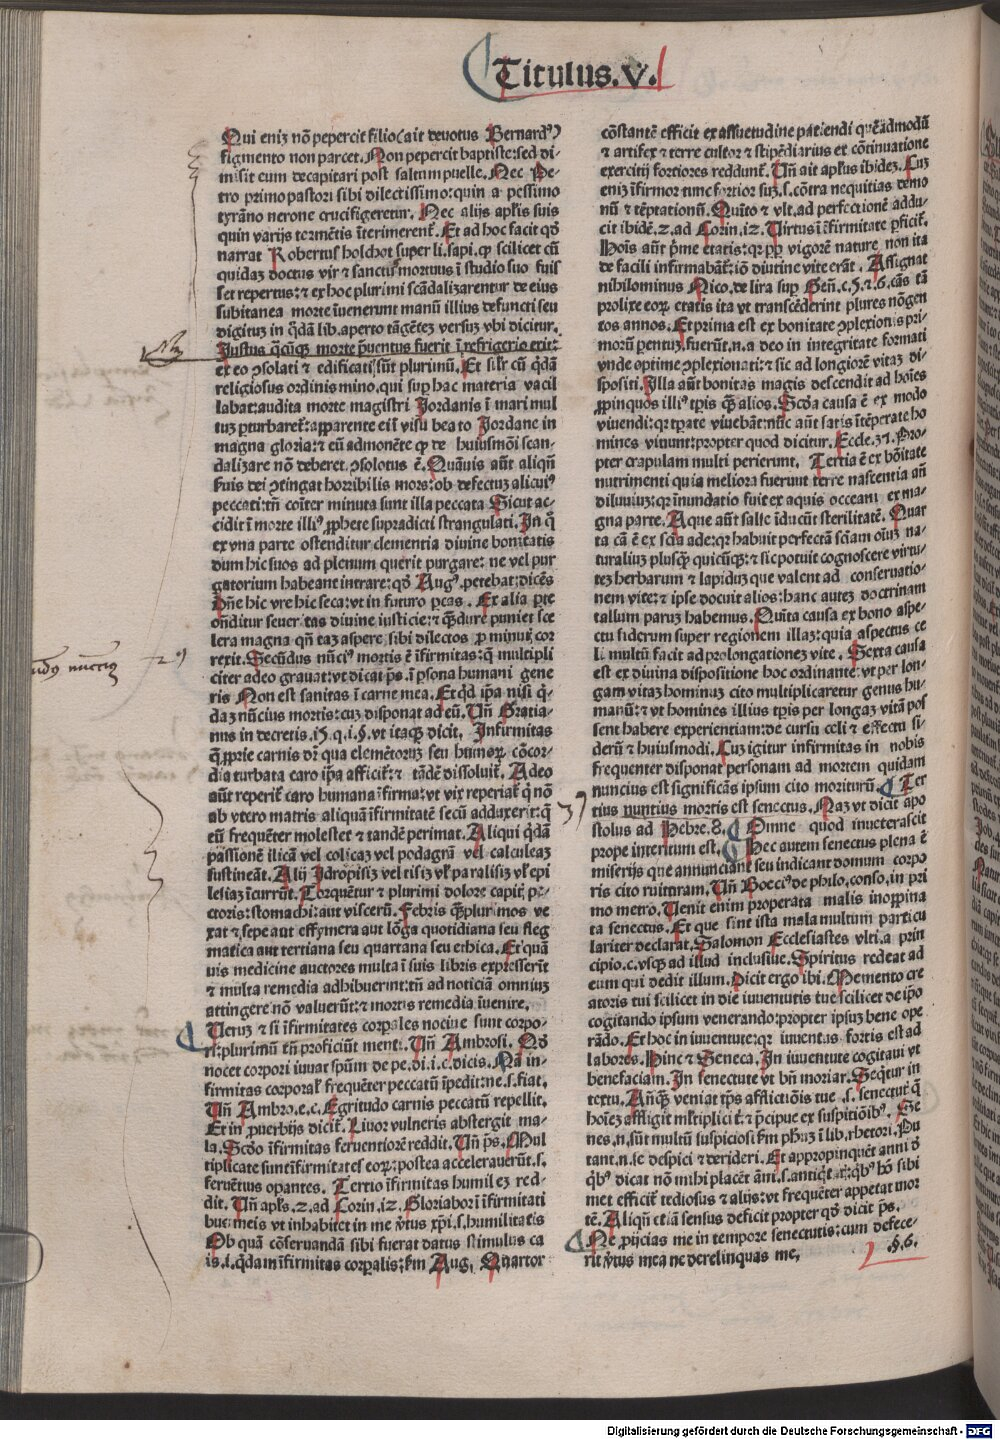 Titulus.V.
Qui eniz nō pepercit filio(ait deuotus Bernardꝰ)
figmento non parcet. Non pepercit baptiste:sed di-
misit eum decapitari post saltum puelle. Nec Pe-
tro primo pastori sibi dilectissimo:quin a pessimo
tyrāno nerone crucifigeretur. Nec alijs aplis suis
quin varijs tormētis īterimerent᷑. Et ad hoc facit qđ
narrat Robertus holchot super li. sapi. ꝙ scilicet cū
quidaz doctus vir & sanctus mortuus ī studio suo fuis
set repertus: & ex hoc plurimi scādalizarentur de eius
subitanea morte īuenerunt manū illius defuncti seu
digituz in q̄dā lib. aperto tāgētez versuz vbi dicitur.
Justus q̄cūqz morte p̄uentus fuerit ī refrigerio erit:
ex eo ꝯsolati & edificati sūt plurimū. Et sil'r cū q̄dā
religiosus ordinis mino. qui sup hac materia vacil
labat:audita morte magistri Jordanis ī mari mul
tuz pturbaret᷑:apparente ei ī visu beato Jordane in
magna gloria: & eū admonēte ꝙ de huiusmōi scan-
dalizare nō deberet. ꝯsolotus ē. Quāuis aūt aliqn̄
suis dei ꝯtingat horribilis mors:ob defectuz alicuiꝰ
peccati:tn̄ cōiter minuta sunt illa peccata Sicut ac-
cidit ī morte illiꝰ ꝓphete supradicti strangulati. In q̄
ex vna parte ostenditur clementia diuine bonitatis
dum hic suos ad plenum querit purgare: ne vel pur
gatorium habeant intrare: qđ Augꝰ. petebat: dicēs
Dn̄e hic vre hic seca:vt in futuro pcas. Ex alia pte
ondītur seueritas diuine iusticie: & q̄ dure puniet sce
lera magna qn̄ taz aspere sibi dilectos ꝓ minuiꝰ cor
rexit. Secūdus nūciꝰ mortis ē īfirmitas: q̄ multipli
citer adeo grauat: vt dicat ps. ī psona humani gene
ris Non est sanitas ī carne mea. Et qđ ip̄a nisi q̄-
daz nūcius mortis:cuz disponat ad eū. Vn̄ Gratia-
nus in decretis. 13. q. i. §. vt itaqz dicit. Infirmitas
q̄ pprie carnis dr̄ qua elemētoruz seu humoꝝ cōcor-
dia turbata caro ip̄a afficit᷑: & tādē dissoluit᷑. Adeo
aūt reperit᷑ caro humana īfirma: vt vix reperiat᷑ q̄ nō
ab vtero matris aliquā īfirmitatē secū adduxerit: q̄
eū frequēter molestet & tandē perimat. Aliqui q̄dā
passionē ilicā vel colicaz vel podagrā vel calculeaz
sustineāt. Alij Idropisiz vel tisiz vl' paralisiz vl' epi
lesiaz īcurrūt. Torquētur & plurimi dolore capit᷑ pe-
ctoris:stomachi:aut visceru. Febris q̄ꝫ plurimos ve
xat & sepe aut effymera aut lōga quotidiana seu fleg
matica aut tertiana seu quartana seu ethica. Et quā
uis medicine auctores multa ī suis libris expresserīt
& multa remedia adhibuerint:tn̄ ad noticiā omniuz
attingere nō valuerūt: & mortis remedia īuenire.
Veruz & si īfirmitates corpales nociue sunt corpo-
ri: plurimū tn̄ proficiūt menti. Vn̄ Ambrosi. Qđ
nocet corpori iuuat spūm de pe. di. i. c. dicis. Nā in-
firmitas corporal' frequēter peccatū īpedit: ne. s. fiat.
Vn̄ Ambro. e. c. Egritudo carnis peccatū repellit.
Et in prouerbijs dicit᷑. Liuor vulneris abstergit ma-
la. Scđo īfirmitas feruentiorē reddit. Vn̄ ps. Mul
tiplicate sunt īfirmitates eoꝝ: postea accelerauerūt. s.
feruētius opantes. Tertio īfirmitas humilez red-
dit. Vn̄ apls. 2. ad Corin. 12. Gloriabor ī īfirmitati
bus meis vt inhabitet in me ꝟtus xp̄i. s. humilitatis
Ob quā cōseruandā sibi fuerat datus stimulus ca
is. i. q̄dam īfirmitas corpalis: f'm Aug. Quartor
cōstantē efficit ex assuetudine patiendi quēadmodū
& artifex & terre cultor & stipēdiarius et cōtinuatione
exercitij fortiores reddunt᷑. Vn̄ ait aplus ibidez. Cuz
eniz īfirmor tunc fortior suz. s. cōtra nequitias demo
nū & tēptationū. Quīto & vlt. ad perfectionē addu-
cit ibidē. 2. ad Corin. 12. Virtus ī īfirmitate pficit᷑.
Hois aūt p̄me etatis: qr ꝓp vigorē nature non ita
de facili infirmabāt᷑: iō diutine vite erāt. Assignat
nihilominus Nico. de lira sup Gen̄. c. 5. & 6. cās tā
prolixe eoꝝ etatis ita vt transcēderint plures nōgen
tos annos. Et prima est ex bonitate ꝯplexionis pri-
morū pentuz, fuerūt. n. a deo in integritate formati
vnde optime ꝯplexionati: & sic ad longiorē vitaz di-
spositi. Illa aūt bonitas magis descendit ad hoies
ꝓpinquos illiꝰ tpis q̄ꝫ alios. Scđa causa ē ex modo
viuendi: qr tpate viuebāt: nūc aūt satis ītēperate ho
mines viuunt: propter quod dicitur. Eccle. 37. Pro-
pter crapulam multi perierunt. Tertia ē ex bōitate
nutrimenti quia meliora fuerunt terre nascentia añ
diluuiuz: qr īnundatio fuit ex aquis occeani ex ma-
gna parte. Aque aūt salse īducūt sterilitatē. Quar
ta cā ē ex scīa ade: qr habuit perfectā scīam oīuz na-
turaliuz plusq̄ꝫ quicūqz: & sic potuit cognoscere virtu-
tez herbarum & lapiduz que valent ad conseruatio-
nem vite: & ipse docuit alios: hanc autez doctrinam
tallum paruz habemus. Quīta causa ex bono aspe-
ctu siderum super regionem illaz: quia aspectus ce
li multū facit ad prolongationez vite. Sexta causa
est ex diuina dispositione hoc ordinante: vt per lon-
gam vitaz hominuz cito multiplicaretur genus hu-
manū: & vt homines illius tpis per longaz vitā pos
sent habere experientiam: de cursu celi & effectu si-
derū & huiusmodi. Cuz igitur infirmitas in nobis
frequenter disponat personam ad mortem quidam
nuncius est significās ipsum cito moriturū. Ter
tius nuntius mortis est senectus. Naz vt dicit apo
stolus ad Hebre. 8. Omne quod inueterascit
prope interitum est. Hec autem senectus plena ē
miserijs que annunciant seu indicant domum corpo
ris cito ruituram. Vn̄ Boeciꝰ de philo. conso. in pri
mo metro. Uenit enim properata malis inopina
ta senectus. Et que sint ista mala multum particu
lariter declarat. Salomon Ecclesiastes vlti. a prin
cipio. c. vsqz ad illud inclusiue. Spiritus redeat ad
eum qui dedit illum. Dicit ergo ibi. Memento cre
atoris tui scilicet in die iuuentutis tue scilicet de ip̄o
cogitando ipsum venerando: propter ipsuz bene ope
rādo. Et hoc in iuuentute: qr iuuentus fortis est ad
labores. Hinc & Seneca. In iuuentute cogitaui vt
benefaciam. In senectute vt bn̄ moriar. Seqtur in
textu. An̄q̄ꝫ veniat tps afflictiōis tue. s. senectut᷑ q̄
hoīez affligit mltiplicit᷑: & p̄cipue ex suspitiōibꝰ. Se
nes. n. sūt multū suspiciosi f'm phuz ī lib. rhetori. Pu
tant. n. se despici & derideri. Et appropinquēt anni đ
q̄bꝰ dicat nō mihi placēt āni. s. antiq̄tat᷑: q̄bꝰ hō sibi
met efficit᷑ tediosus & alijs: vt frequēter appetat mor
tē. Aliqn̄ etiā sensus deficit propter qđ dicit ps.
Ne proijcias me in tempore senectutis: cum defece-
rit ꝟtus mea ne derelinquas me. .§. 6.
Digitalisierung gefördert durch die Deutsche Forschungsgemeinschaft - DFG